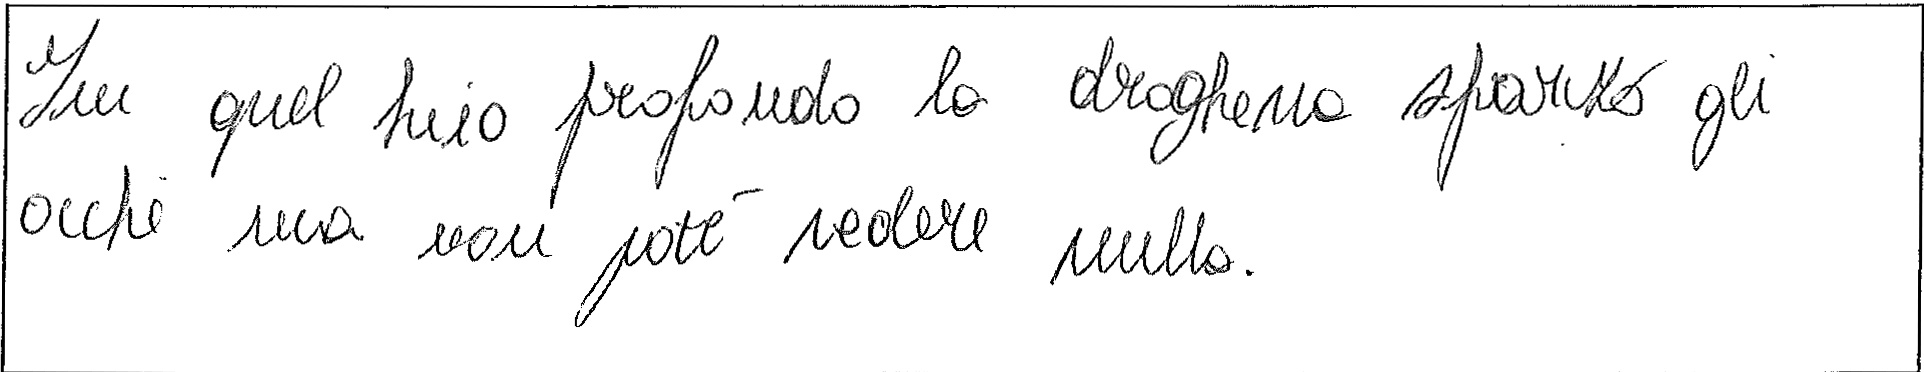 In quel buio profondo la draghessa spalancò gli
occhi ma non poté vedere nulla.